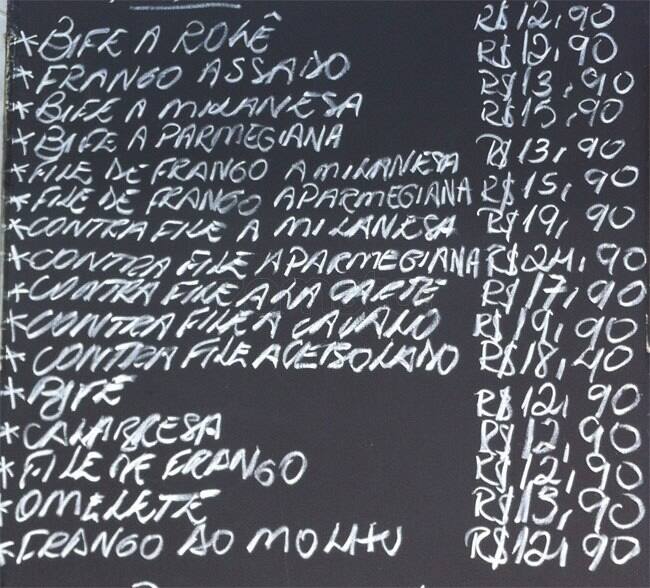 *BIFE A ROLÊ R$12,90
*FRANGO ASSADO R$12,90
*BIFE A MILANESA R$13,90
*BIFE A PARMEGIANA R$15,90
*FILE DE FRANGO A MILANESA R$13,90
*FILE DE FRANGO A PARMEGIANA R$15,90
*CONTRA FILE A MILANESA R$19,90
*CONTRA FILE A PARMEGIANA R$24,90
*CONTRA FILE A LA CARTE R$17,90
*CONTRA FILE A CAVALO R$19,90
*CONTRA FILE ACEBOLADO R$18,40
*BIFE R$12,90
*CALABRESA R$12,90
*FILE DE FRANGO R$12,90
*OMELETE R$13,90
*FRANGO AO MOLHO R$12,90